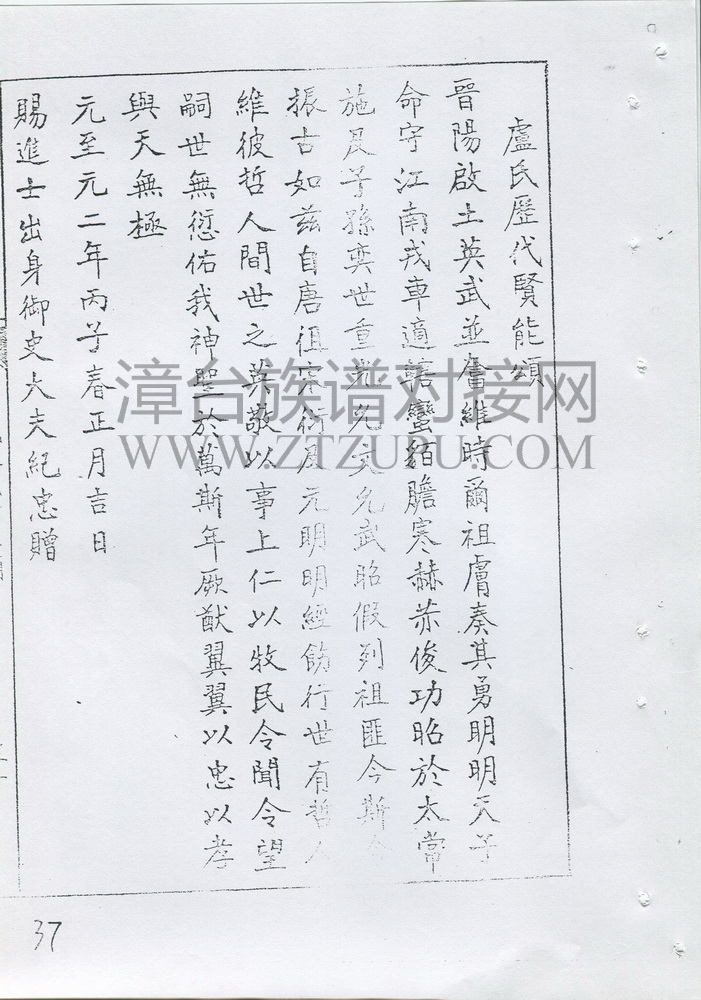 盧氏歷代賢能頌
晉陽啟土英武並奮維時爾祖膚奏其勇明明天子
命守江南戎車適轄蠻貊膽寒赫赤俊功昭於太常
施及子孫奕世重光允文允武昭假列祖匪今斯今
振古如兹自唐徂宋衍及元明明經飭行世有哲人
維彼哲人間世之英敬以事上仁以牧民令聞令望
嗣世無愆佑我神聖於萬斯年厥猷翼翼以忠以孝
與天無極
元至元二年丙子春正月吉日
賜進士出身御史大夫紀忠贈
漳台族谱对接网
WWW.ZTZUPU.COM
37